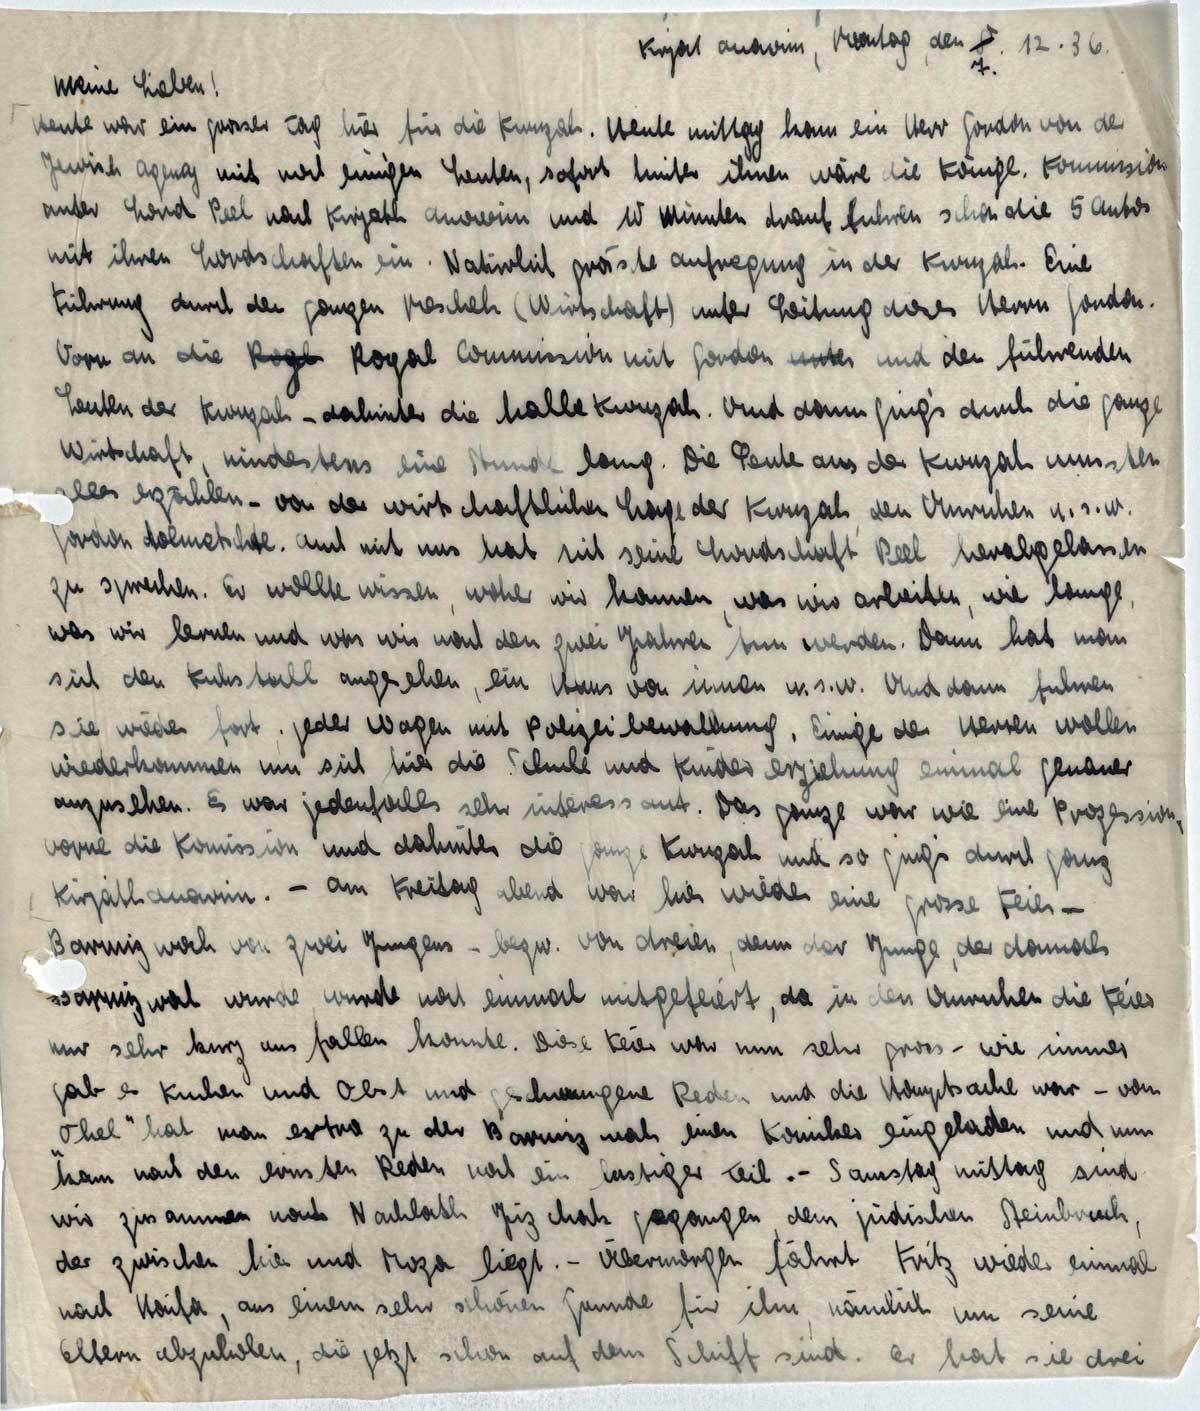 Kirjat anavim, Montag, den 8. 12. 36.
7.
Meine Lieben!
Heute war ein grosser Tag hier für die Kwuzah. Heute mittag kam ein Herr Gordon von der
Jewish Agency mit noch einigen Leuten, sofort hinter ihnen wäre die Königl. Kommission
unter Lord Peel nach Kirjath Anawim und 10 Minuten drauf fuhren schon die 5 Autos
mit ihren Lordschaften ein. Natürlich grösste Aufregung in der Kwuzah. Eine
Führung durch den ganzen Meschek (Wirtschaft) unter Leitung dieses Herrn Gordon.
Vorn an die Rogl Royal Commission mit Gordon unter und den führenden
Leuten der Kwuzah - dahinter die halbe Kwuzah. Und dann ging's durch die ganze
Wirtschaft, mindestens eine Stunde lang. Die Leute aus der Kwuzah mussten
alles erzählen - von der wirtschaftlichen Lage der Kwuzah, den Unruhen u.s.w.
Gordon dolmetschte. Auch mit uns hat sich seine Lordschaft Peel herabgelassen
zu sprechen. Er wollte wissen, woher wir kamen, was wir arbeiten, wie lange,
was wir lernen und was wir nach den zwei Jahren tun werden. Dann hat man
sich den Kuhstall angesehen, ein Haus von innen u.s.w. Und dann fuhren
sie wieder fort, jeder Wagen mit Polizeibewachung. Einige der Herren wollen
wiederkommen um sich hier die Schule und Kindererziehung einmal genauer
anzusehen. Es war jedenfalls sehr interessant. Das ganze war wie eine Prozession,
vorne die Komission und dahinter die ganze Kwuzah und so ging's durch ganz
Kirjath anawim. - Am Freitag abend war hier wieder eine grosse Feier -
Barmizwah von zwei Jungens - bezw. von dreien, denn der Junge, der damals
Barmizwah wurde, wurde noch einmal mitgefeiert, da in den Unruhen die Feier
nur sehr kurz ausfallen konnte. Diese Feier war nun sehr gross - wie immer
gab es Kuchen und Obst und geschwungene Reden und die Hauptsache war - vom
"Ohel" hat man extra zu der Barmizwah einen Komiker eingeladen und nun
kam nach den ernsten Reden noch ein lustiger Teil. - Samstag mittag sind
wir zusammen nach Nachlath Jizchak gegangen, dem jüdischen Steinbruch,
der zwischen hier und Moza liegt. - Übermorgen fährt Fritz wieder einmal
nach Haifa, aus einem sehr schönen Grunde für ihn, nämlich um seine
Eltern abzuholen, die jetzt schon auf dem Schiff sind. Er hat sie drei